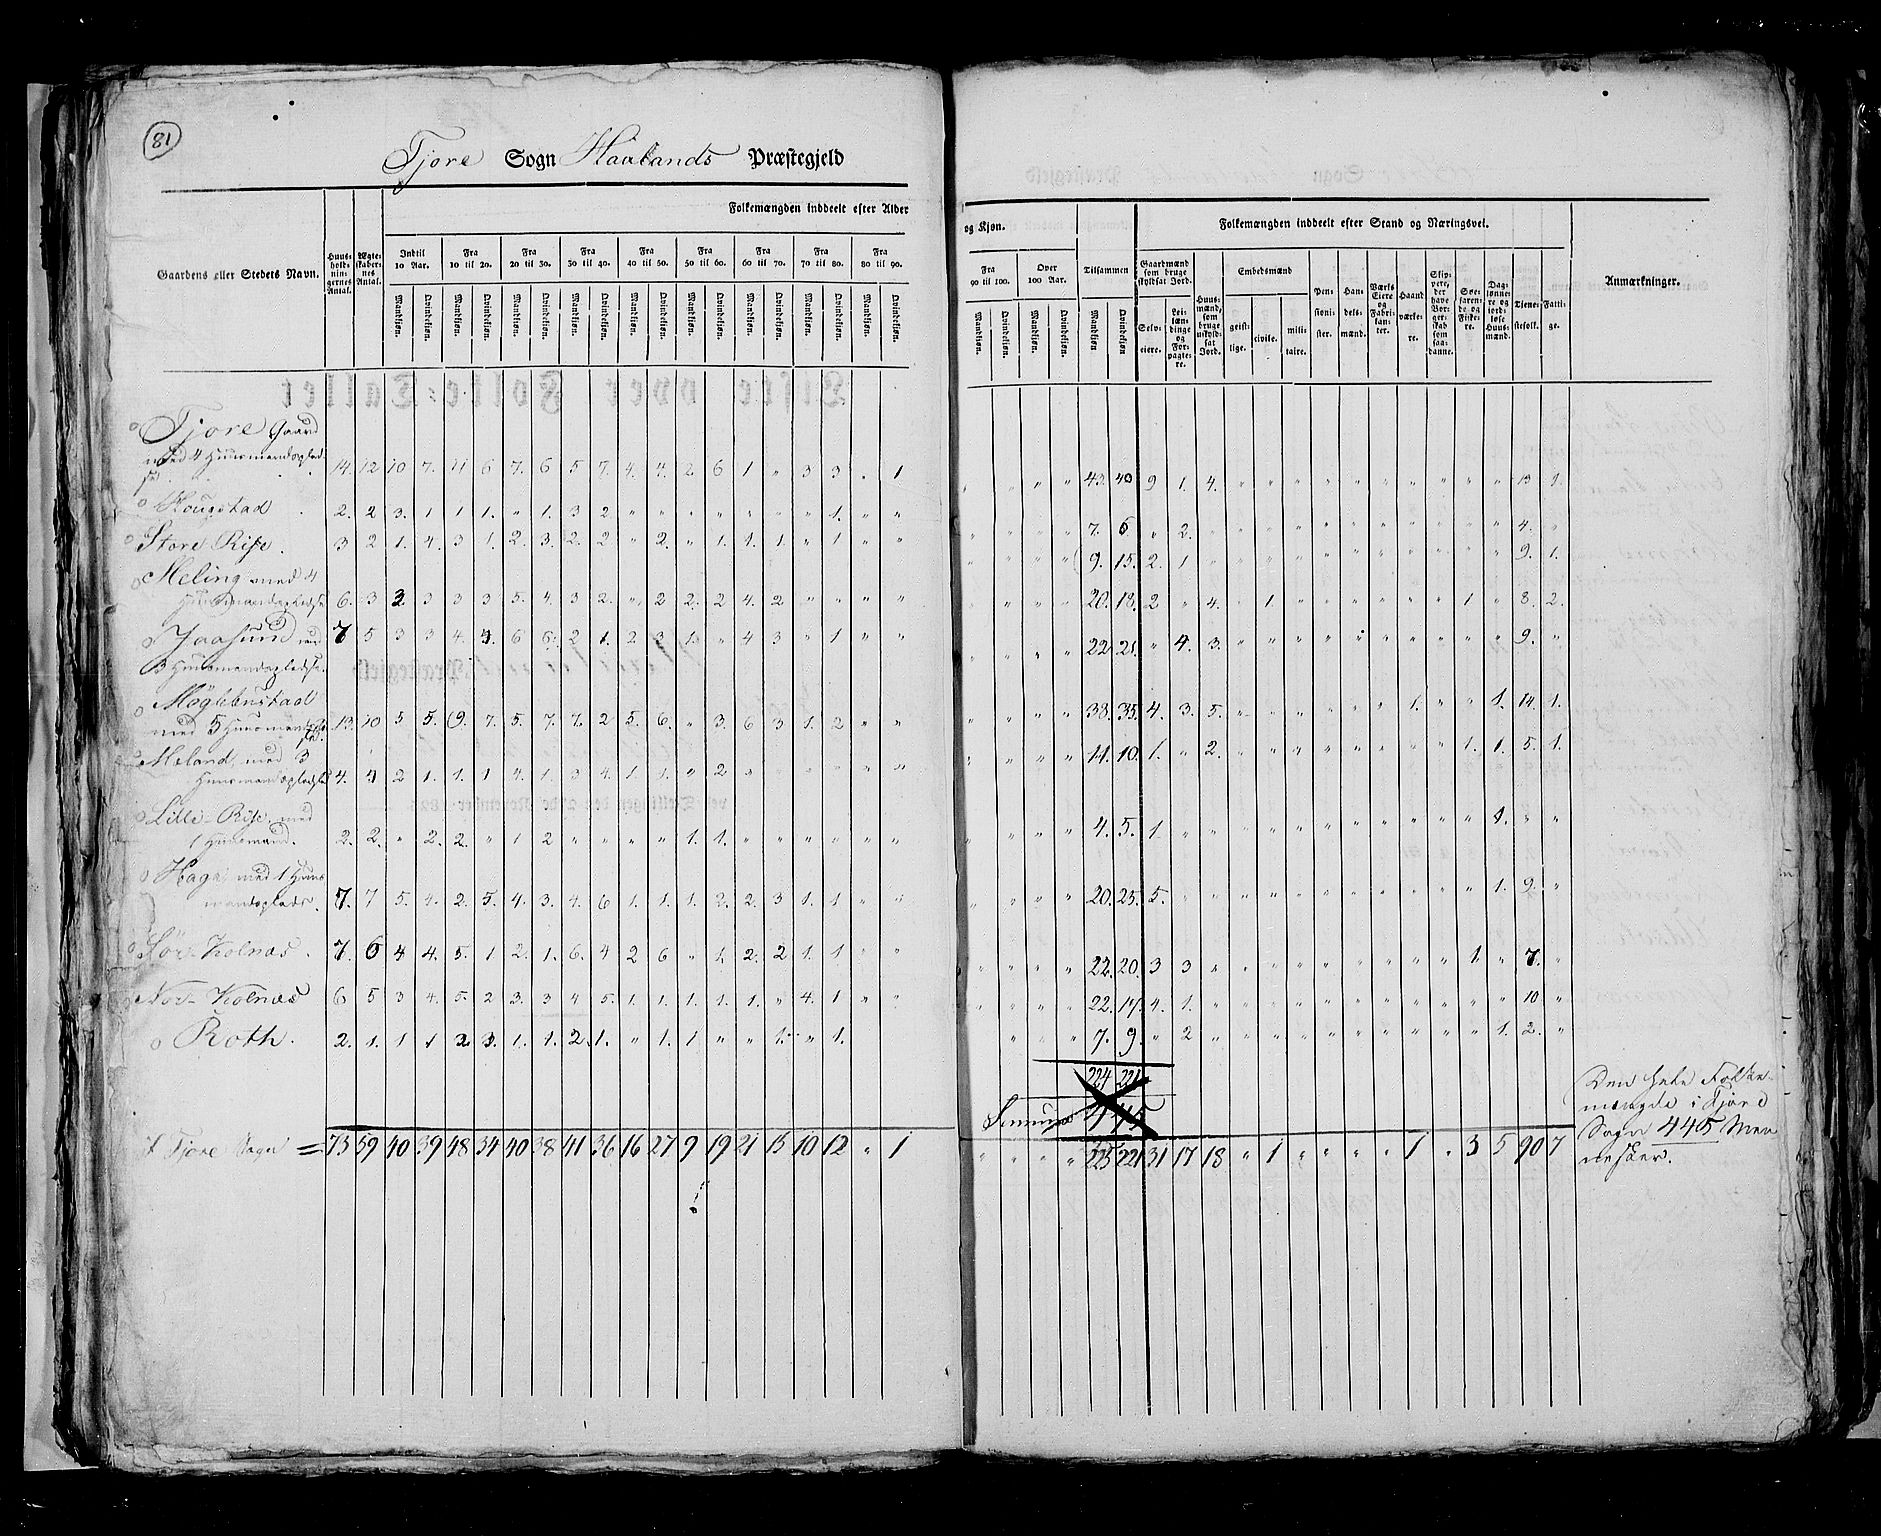 81
Tjore Sogn Haalands Præstegjeld
Folkemængden inddeelt efter Alder og Kjøn. Folkemængden inddeelt efter Stand og Næringsvei.
Gaardens eller Stedets Navn. Huus-holdningernes Antal. Ægteskabernes Antal. Indtil 10 Aar. Fra 10 til 20. Fra 20 til 30. Fra 30 til 40. Fra 40 til 50. Fra 50 til 60. Fra 60 til 70. Fra 70 til 80. Fra 80 til 90. Fra 90 til 100. Over 100 Aar. Tilsammen Gaardmænd som bruge skyldsat Jord. Selveiere. Leilændinge og Forpagtere. Huusmænd, som bruge uskyldsat Jord. Embedsmænd geistlige. civile. militaire. Pensionister. Handelsmænd. Værkseiere og Fabrikanter. Haandværkere. Skippere, der have Borgerskab som saadanne. Søefarende og Fiskere. Daglønnere og jordløse Huusmænd. Tjenestefolk. Fattige. Anmærkninger.
Mandkjøn. Qvindekjøn. Mandkjøn. Qvindekjøn. Mandkjøn. Qvindekjøn. Mandkjøn. Qvindekjøn. Mandkjøn. Qvindekjøn. Mandkjøn. Qvindekjøn. Mandkjøn. Qvindekjøn. Mandkjøn. Qvindekjøn. Mandkjøn. Qvindekjøn. Mandkjøn. Qvindekjøn. Mandkjøn. Qvindekjøn. Mandkjøn Qvindekjøn
Tjore Gaard
med 4 Huusmandsplad-
se. 14. 12 10 7. 11 6 7. 6 5 7. 4. 4. 2 6 1 " 3 3 " 1 " " " " 43. 40 9 1. 4. " " " " " " " " " " 13 1.
Hougstad 2. 2 3. 1 1 1. " 1. 3 2 " " " " " " " 1. " " " " " " 7. 6 " 2. " " " " " " " " " " " 4. "
Store Risje. 3 2 1. 4. 3 1. 2. 3. 2. 2 " 2. " 1. 1. 1. " 1 " " " " " " 9. 15. 2. 1 " " " " " " " " " " " 9. 1.
Meling med 4
Huusmandspladse 6. 3 3. 3 3 3 5. 4. 3 2. " 2 2. 2 4. 2 " " " " " " " " 20. 18. 2 " 4. " 1. " " " " " " 1 " 8. 2.
Jaasund med 7 5 3 3 4. 4. 6 6. 2 1. 2 3. 1. " 4 3 " 1 " " " " " " 22 21. " 4. 3. " " " " " " " " " " 9. "
3 Huusmandspladse.
Møglebustad
med 5 Huusmandspladse. 13. 10 5 5. 9. 7. 5. 7. 7. 2 5. 6. " 3. 6 3 1. 2 " " " " " " 38. 35. 4. 3. 5. " " " " " " 1. " " 1. 14. 1.
Meland, med 3
Huusmandspladse 4. 4 2 1. 1. 1 4. 1. 3 4. 1. 1. " 2 " " " " " " " " " " 11. 10. 1. " 2. " " " " " " " " 1. 1. 5. 1.
Lille-Risje, med
1 Huusmand. 2. 2. " 2. 2. " 1 2 " " " " 1. 1. " " " " " " " " " " 4. 5. 1. " " " " " " " " " " " 1. " "
Haga, med 1 Huus
mandsplads. 7. 7 5. 4. 2. 5. 4. 3. 4. 6 1. 1. 1. 2. 2. 3 1. 1. " " " " " " 20. 25. 5. " " " " " " " " " " " 1. 9. "
Sör-Kolnæs. 7. 6 4 4. 5. 1 2. 1. 6. 4 2 6 " 1. 2. 2 1. 1 " " " " " " 22. 20. 3 3 " " " " " " " " " 1. " 7. "
Nor-Kolnæs 6 5 3 4. 5. 2 3. 3 4 5. 1. 1. 1. 1. 1. " 4. 1 " " " " " " 22. 17. 4. 1. " " " " " " " " " " " 10 "
Roth. 2. 1. 1 1 2. 3. 1. 1. 2. 1. " 1. 1 " " 1. " 1. " " " 7. 9. " 2 " " " " " " " " " " 1. 2. "
224 221
Summa 445
Tjore Sogn = 73 59 40 39 48 34 40 38 41 36 16 27 9 19 21 15 10 12 " 1 " " " " 225 221 31 17 18 " 1 " " " " 1 " 3 5 90 7
Den hele Folke-
mængde i Tjore
Sogn 445 Men
nesker.